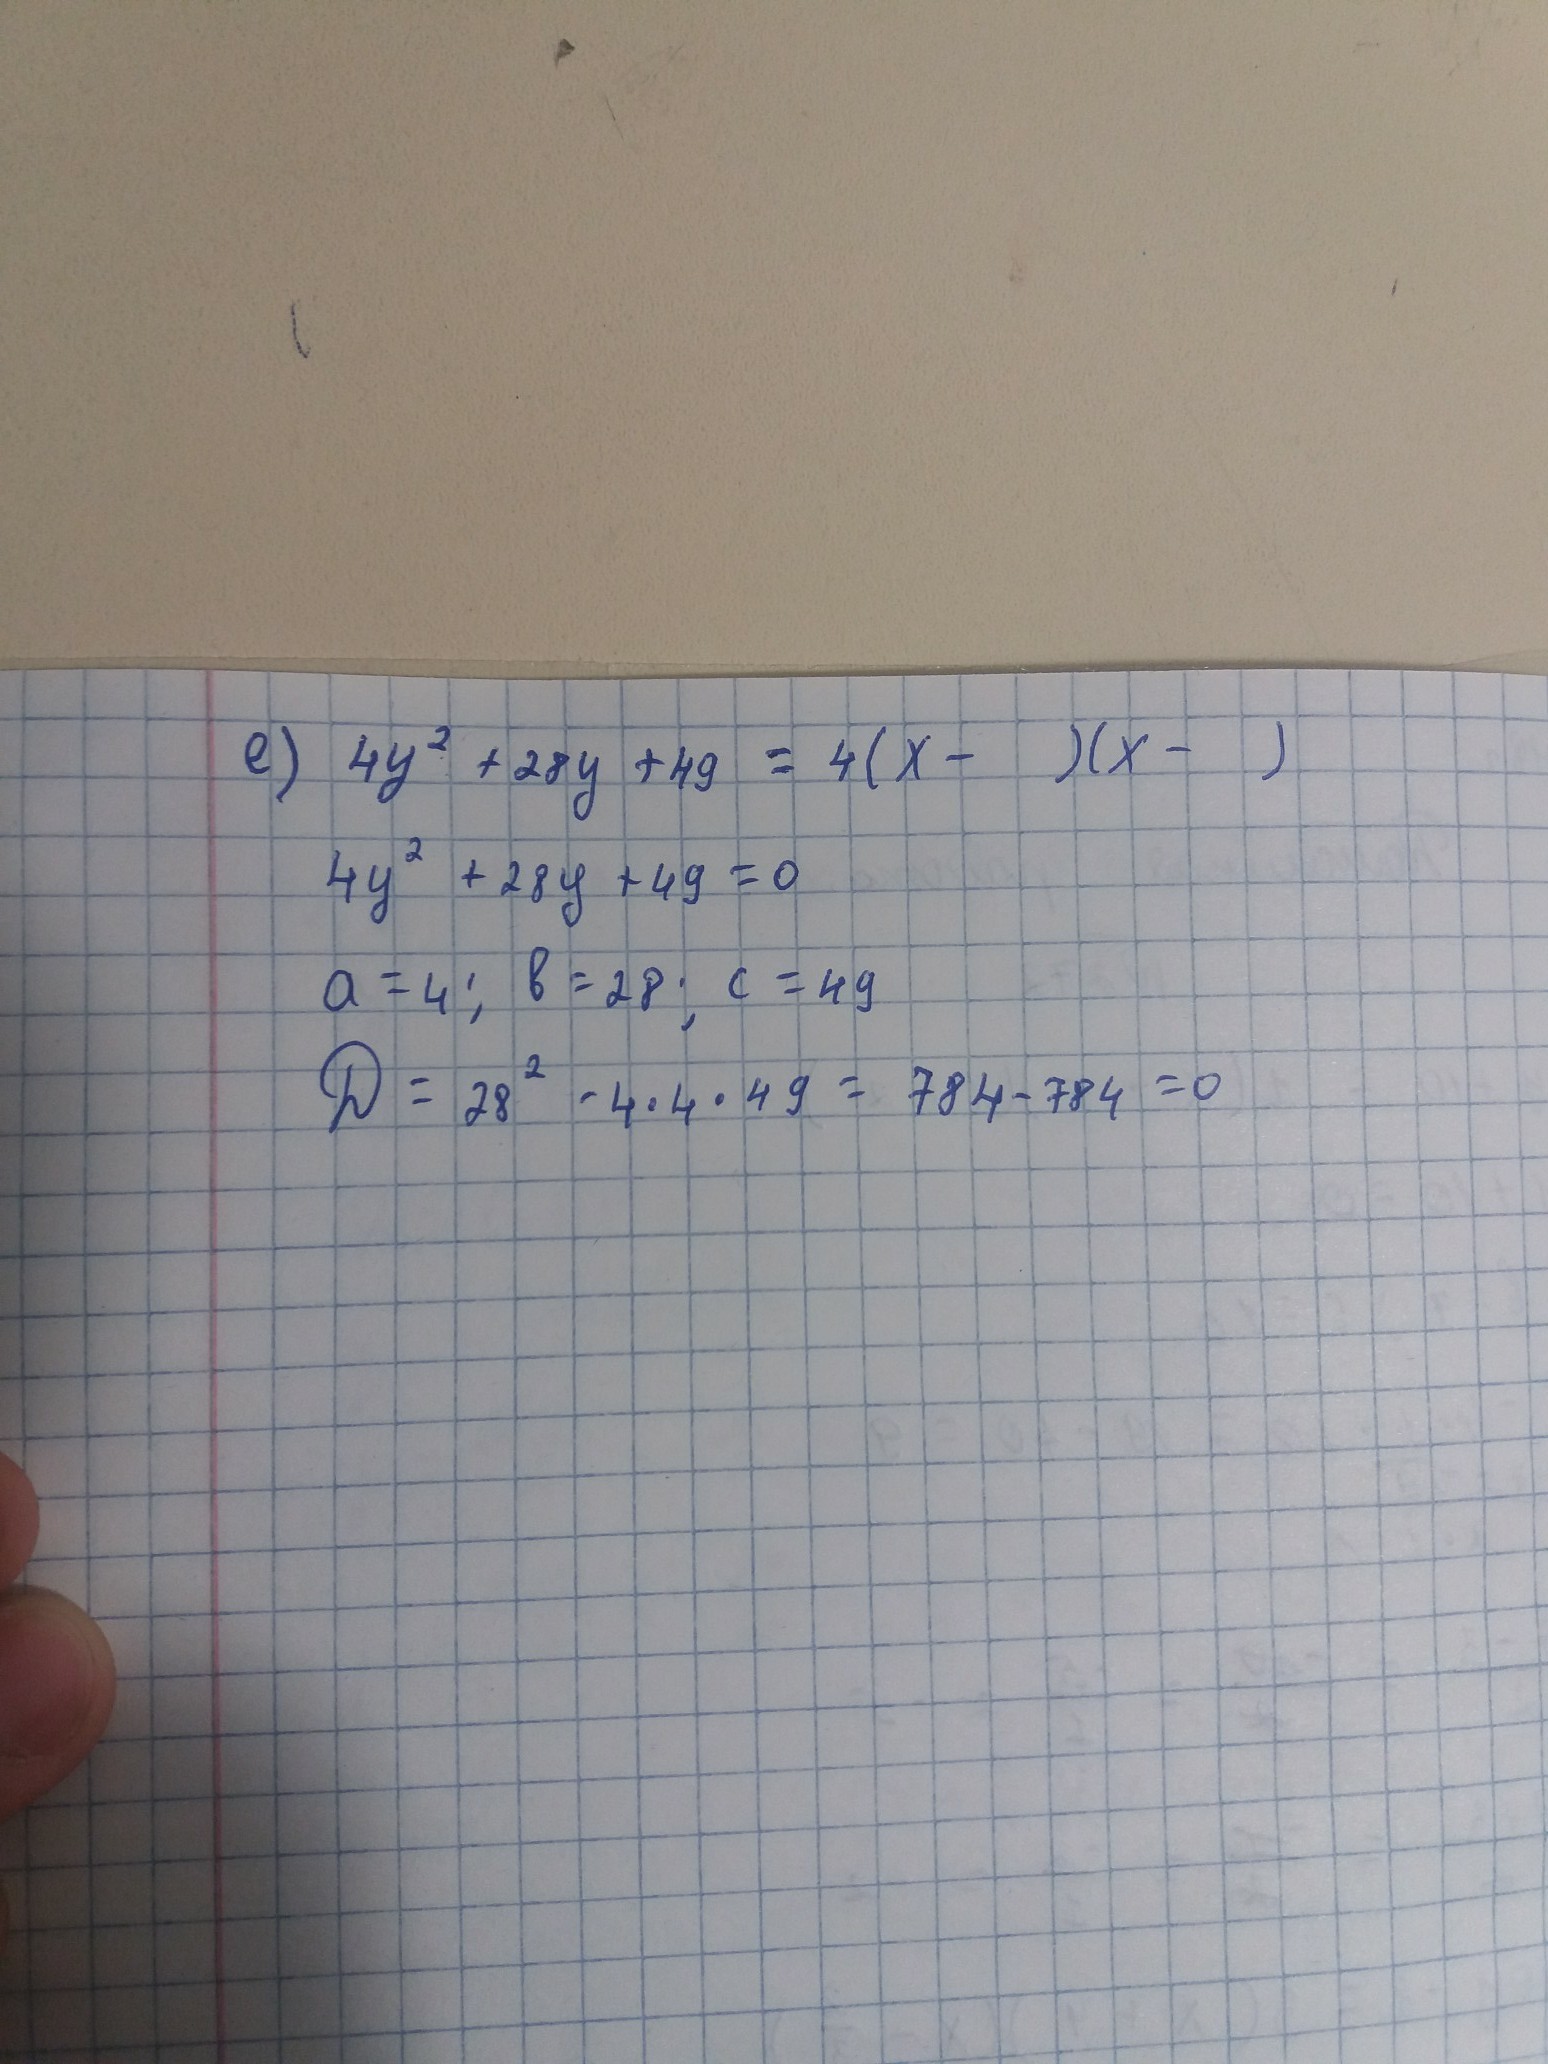 е) 4y² + 28y + 49 = 4(x - )(x - )
4y² + 28y + 49 = 0
a = 4; b = 28; c = 49
D = 28² - 4·4·49 = 784 - 784 = 0